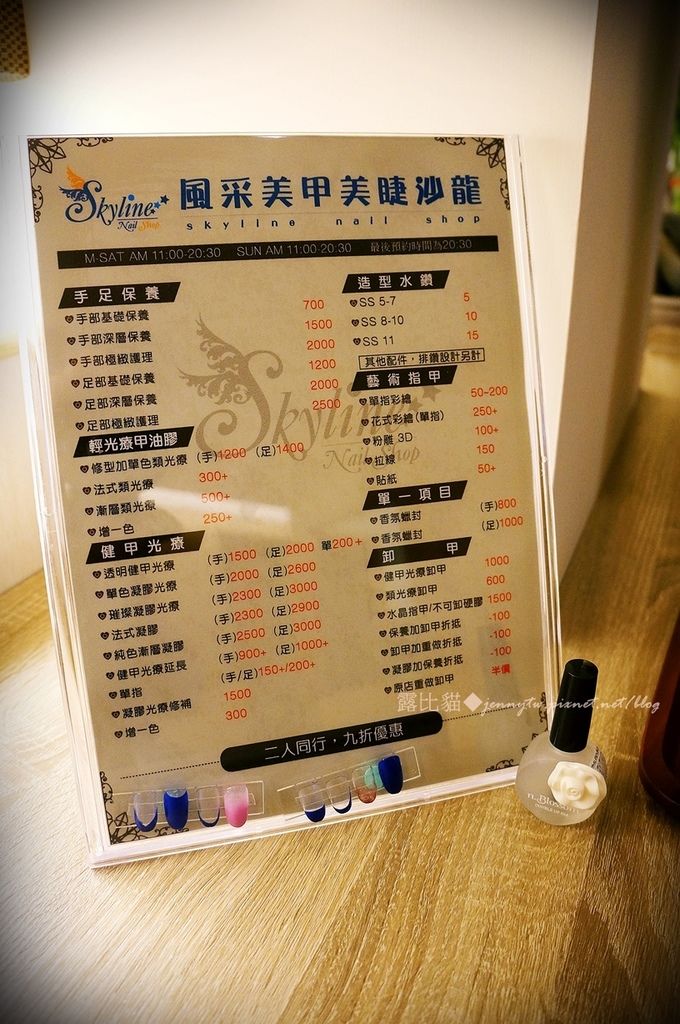 Skyline
Nail Shop
風采美甲美睫沙龍
skyline nail shop
M-SAT AM 11:00-20:30 SUN AM 11:00-20:30 最後預約時間為20:30
手足保養
手部基礎保養 700
手部深層保養 1500
手部極緻護理 2000
足部基礎保養 1200
足部深層保養 2000
足部極緻護理 2500
輕光療甲油膠
修型加單色類光療 (手)1200 (足)1400
法式類光療 300+
漸層類光療 500+
增一色 250+
健甲光療
透明健甲光療 (手)1500 (足)2000 單200+
單色凝膠光療 (手)2000 (足)2600
璀璨凝膠光療 (手)2300 (足)3000
法式凝膠 (手)2300 (足)2900
純色漸層凝膠 (手)2500 (足)3000
健甲光療延長 (手)900+ (足)1000+
單指 (手/足)150+/200+
凝膠光療修補 1500
增一色 300
造型水鑽
SS 5-7 5
SS 8-10 10
SS 11 15
其他配件，排鑽設計另計
藝術指甲
單指彩繪 50~200
花式彩繪(單指) 250+
粉雕 3D 100+
拉線 150
貼紙 50+
單一項目
香氛蠟封 (手)800
香氛蠟封 (足)1000
卸甲
健甲光療卸甲 1000
類光療卸甲 600
水晶指甲/不可卸硬膠 1500
保養加卸甲折抵 -100
卸甲加重做折抵 -100
凝膠加保養折抵 -100
原店重做卸甲 半價
Skyline
Nail Shop
二人同行，九折優惠
露比貓◆jennytw.pixnet.net/blog
n.Blossom